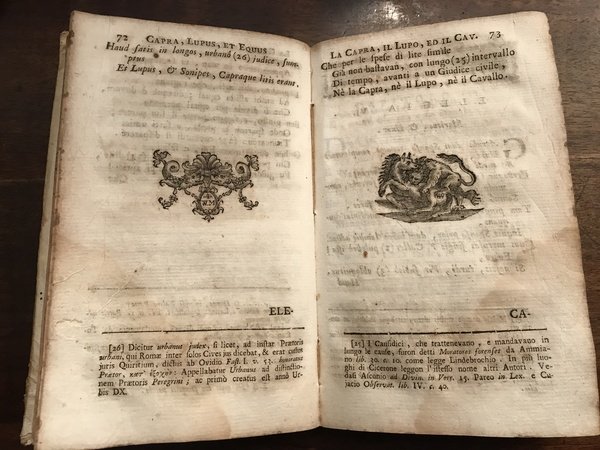 72 CAPRA, LUPUS, ET EQUUS
Haud satis in longos, urbanô (26) judice, sum-
ptus
Et Lupus, & Sonipes, Capraque litis erant.
ELE-
[26] Dicitur urbanus judex, si licet, ad instar Prætoris
urbani, qui Romæ inter solos Cives jus dicebat, & erat custos
juris Quiritium, dictus ab Ovidio Fast. l. 2. 53. honoratus
Prætor, κατ' ἐξοχὴν: Appellabatur Urbanus ad distinctio-
nem Prætoris Peregrini; ac primo creatus est anno Ur-
bis DX.
LA CAPRA, IL LUPO, ED IL CAV. 73
Che per le spese di lite simile
Già non bastavan, con lungo (25) intervallo
Di tempo, avanti a un Giudice civile,
Nè la Capra, nè il Lupo, nè il Cavallo.
CA-
[25] I Causidici, che trattenevano, e mandavano in
lungo le cause, furon detti Moratores forenses da Ammia-
no lib. 30. c. 10. come legge Lindebrochio. In più luo-
ghi di Cicerone leggon l'istesso nome altri Autori. Ve-
dasi Asconio ad Divin. in Verr. 15. Pareo in Lex. e Cu-
jacio Observat. lib. IV. c. 40.